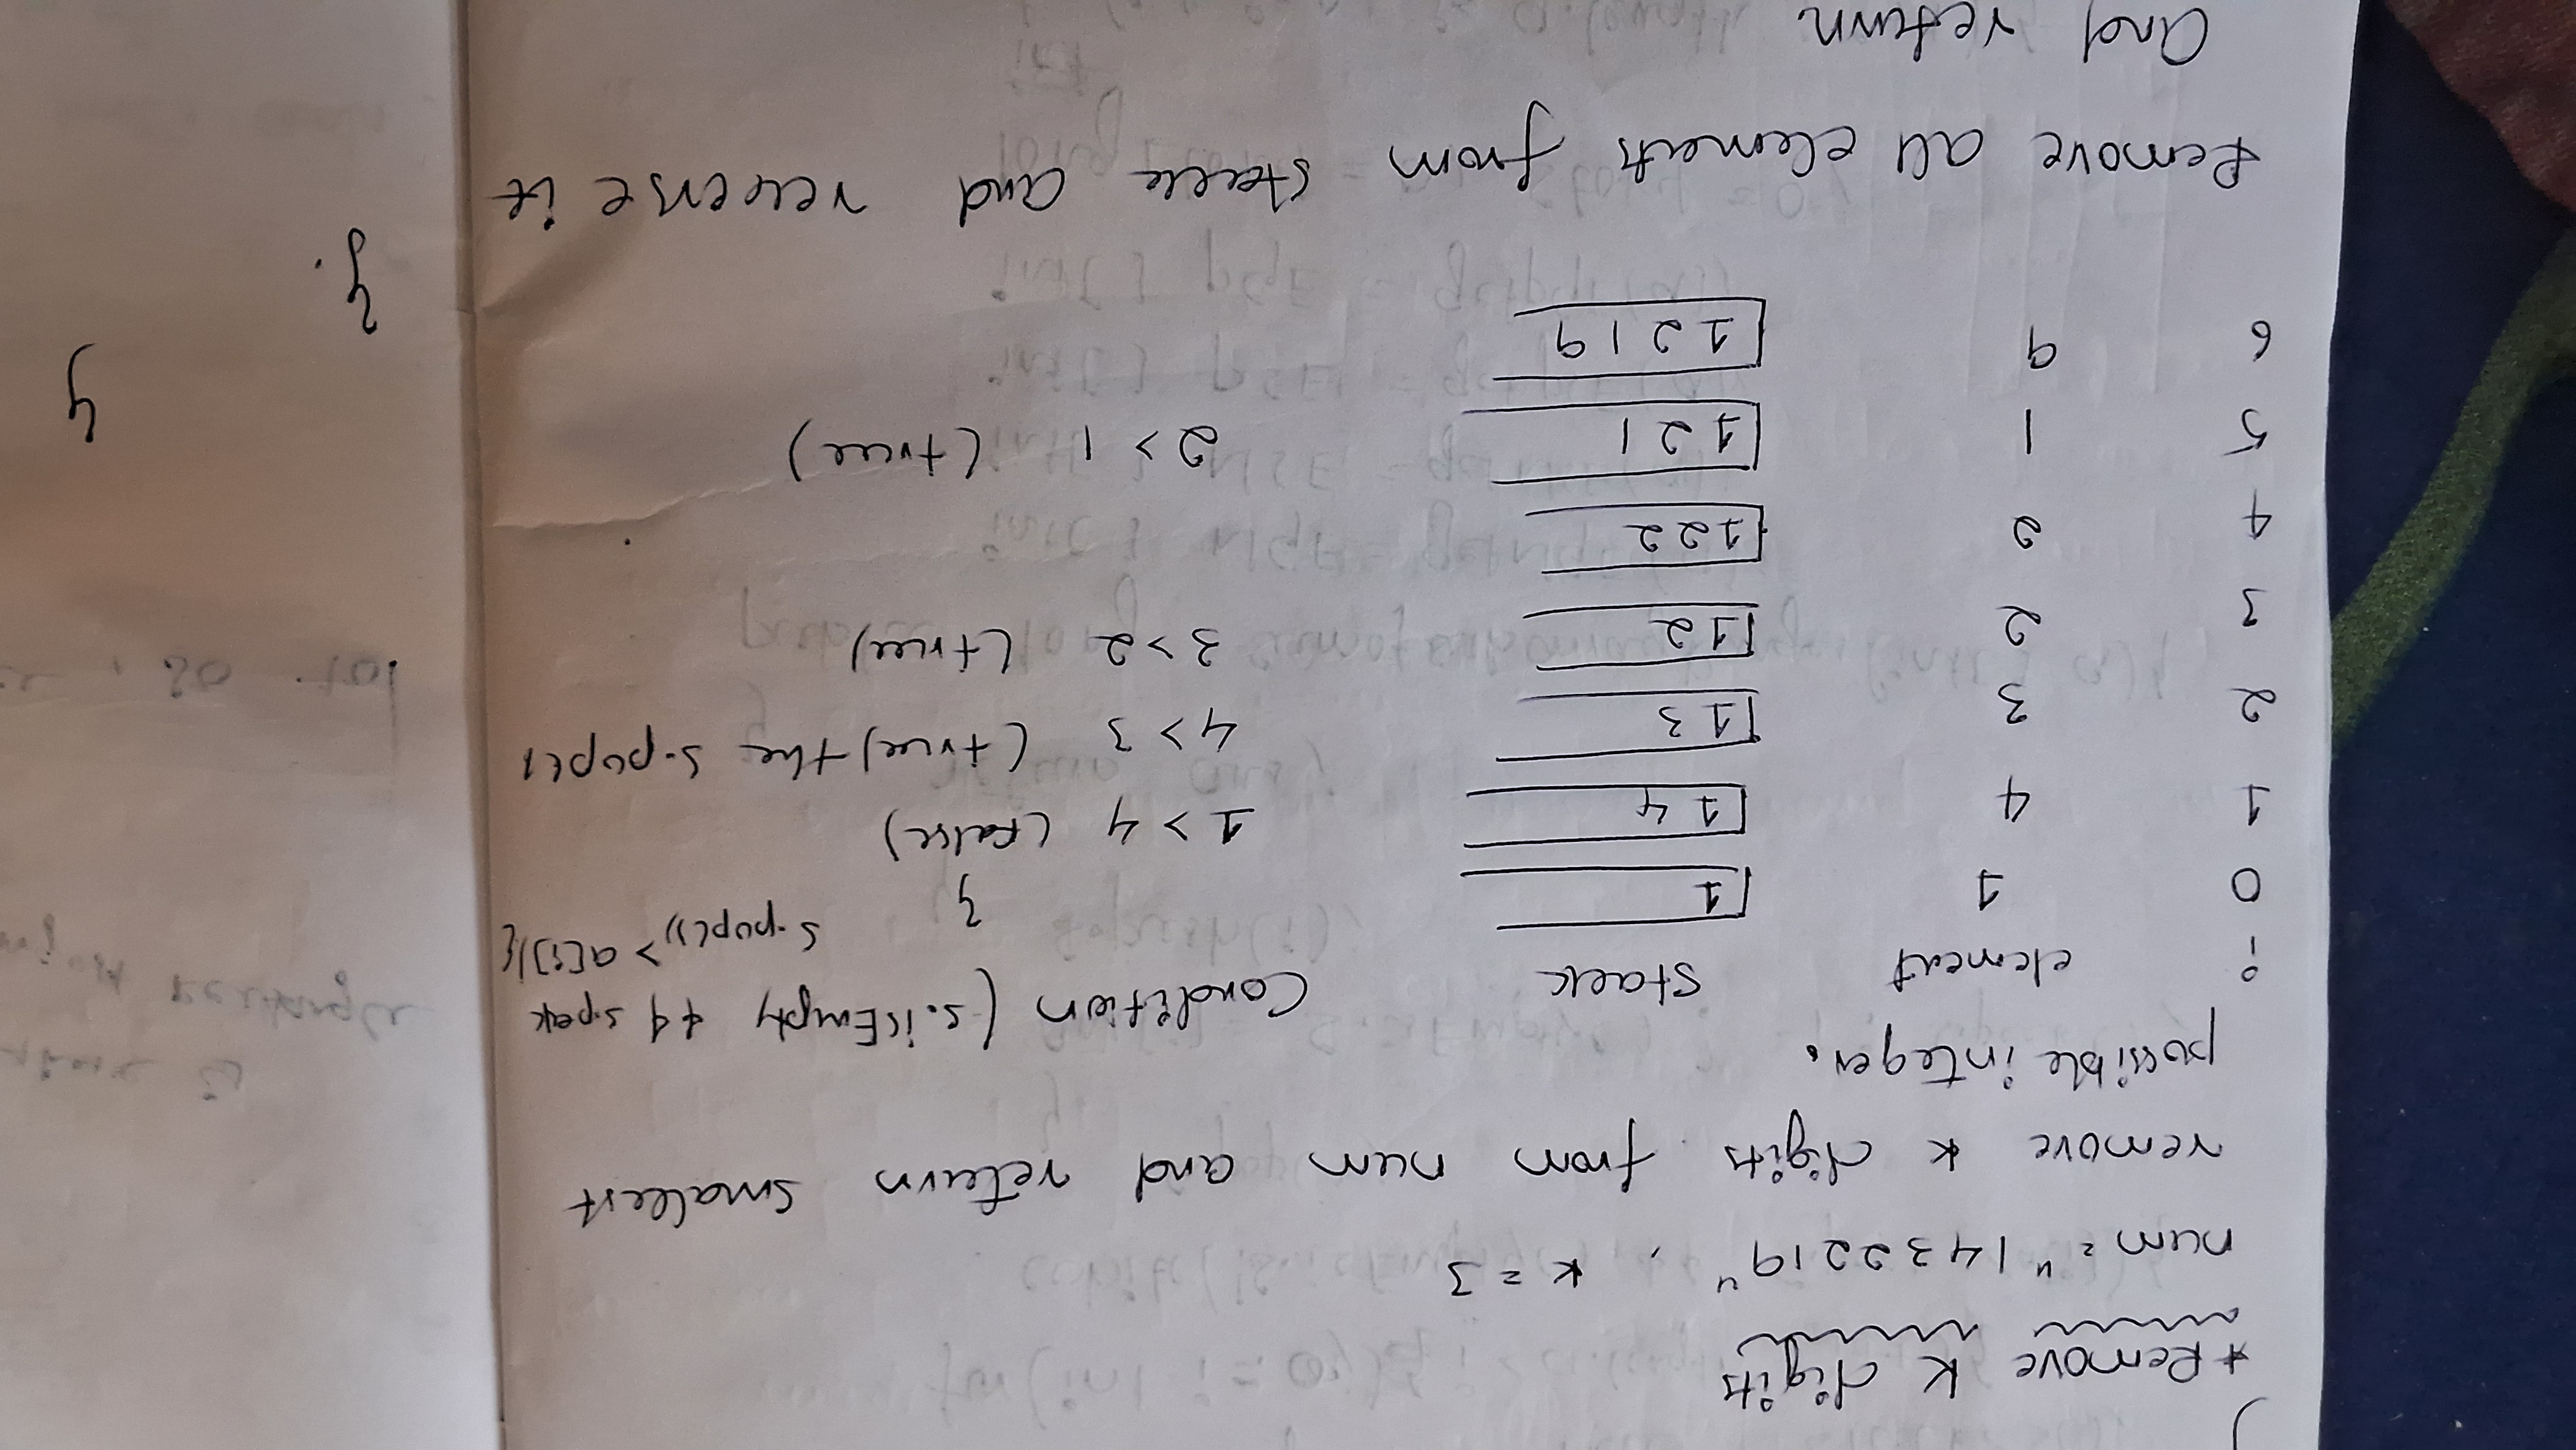 * Remove K digits
num = "1432219", k = 3
remove k digits from num and return smallest
possible integer.
i element Stack Condition (s.isEmpty && s.peek
s.pop()) > a[i]){
}
0 1 1
1 4 1 4 1 > 4 (False)
2 3 1 3 4 > 3 (true) the s.pop()
3 2 1 2 3 > 2 (true)
4 2 1 2 2
5 1 1 2 1 2 > 1 (true)
6 9 1 2 1 9
Remove all elements from stack and reverse it
And return
}
}.